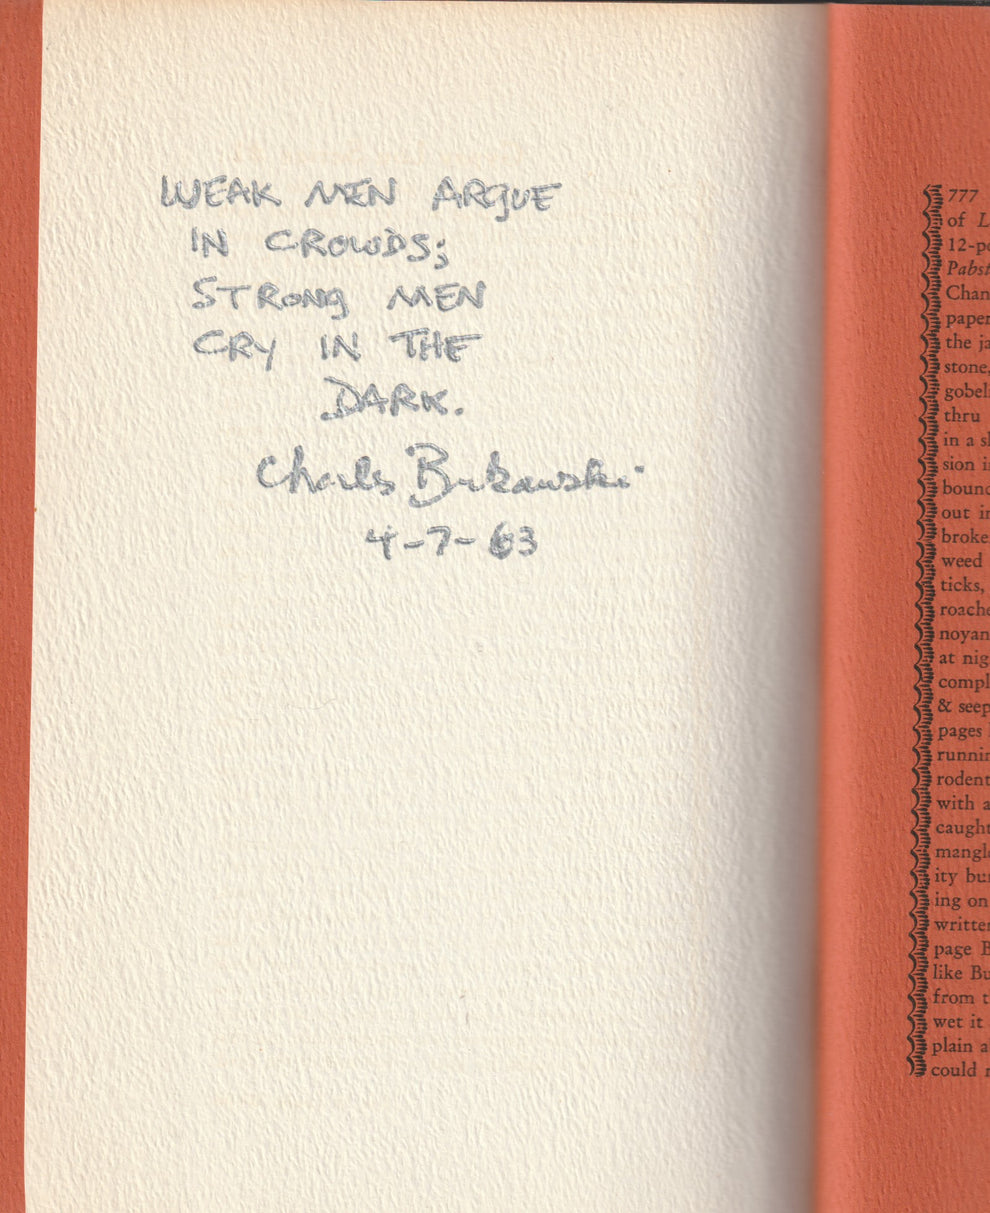 WEAK MEN ARGUE
IN CROWDS;
STRONG MEN
CRY IN THE
DARK.
Charles Bukowski
4-7-63
777
of L
12-p
Pabst
Chan
paper
the ja
stone,
gobel
thru
in a sl
sion i
bound
out in
broke
weed
ticks,
roache
noyan
at nig
compl
& seep
pages
runnin
rodent
with a
caught
mangle
ity bu
ing on
written
page B
like Bu
from t
wet it
plain a
could